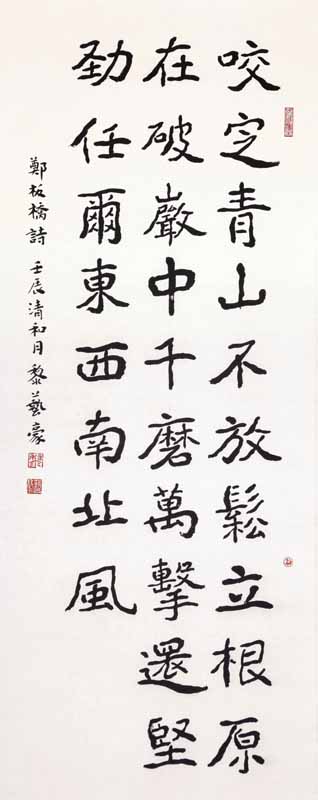 咬定青山不放鬆立根原
在破巖中千磨萬擊還堅
勁任爾東西南北風
鄭板橋詩 壬辰清和月 黎藝豪